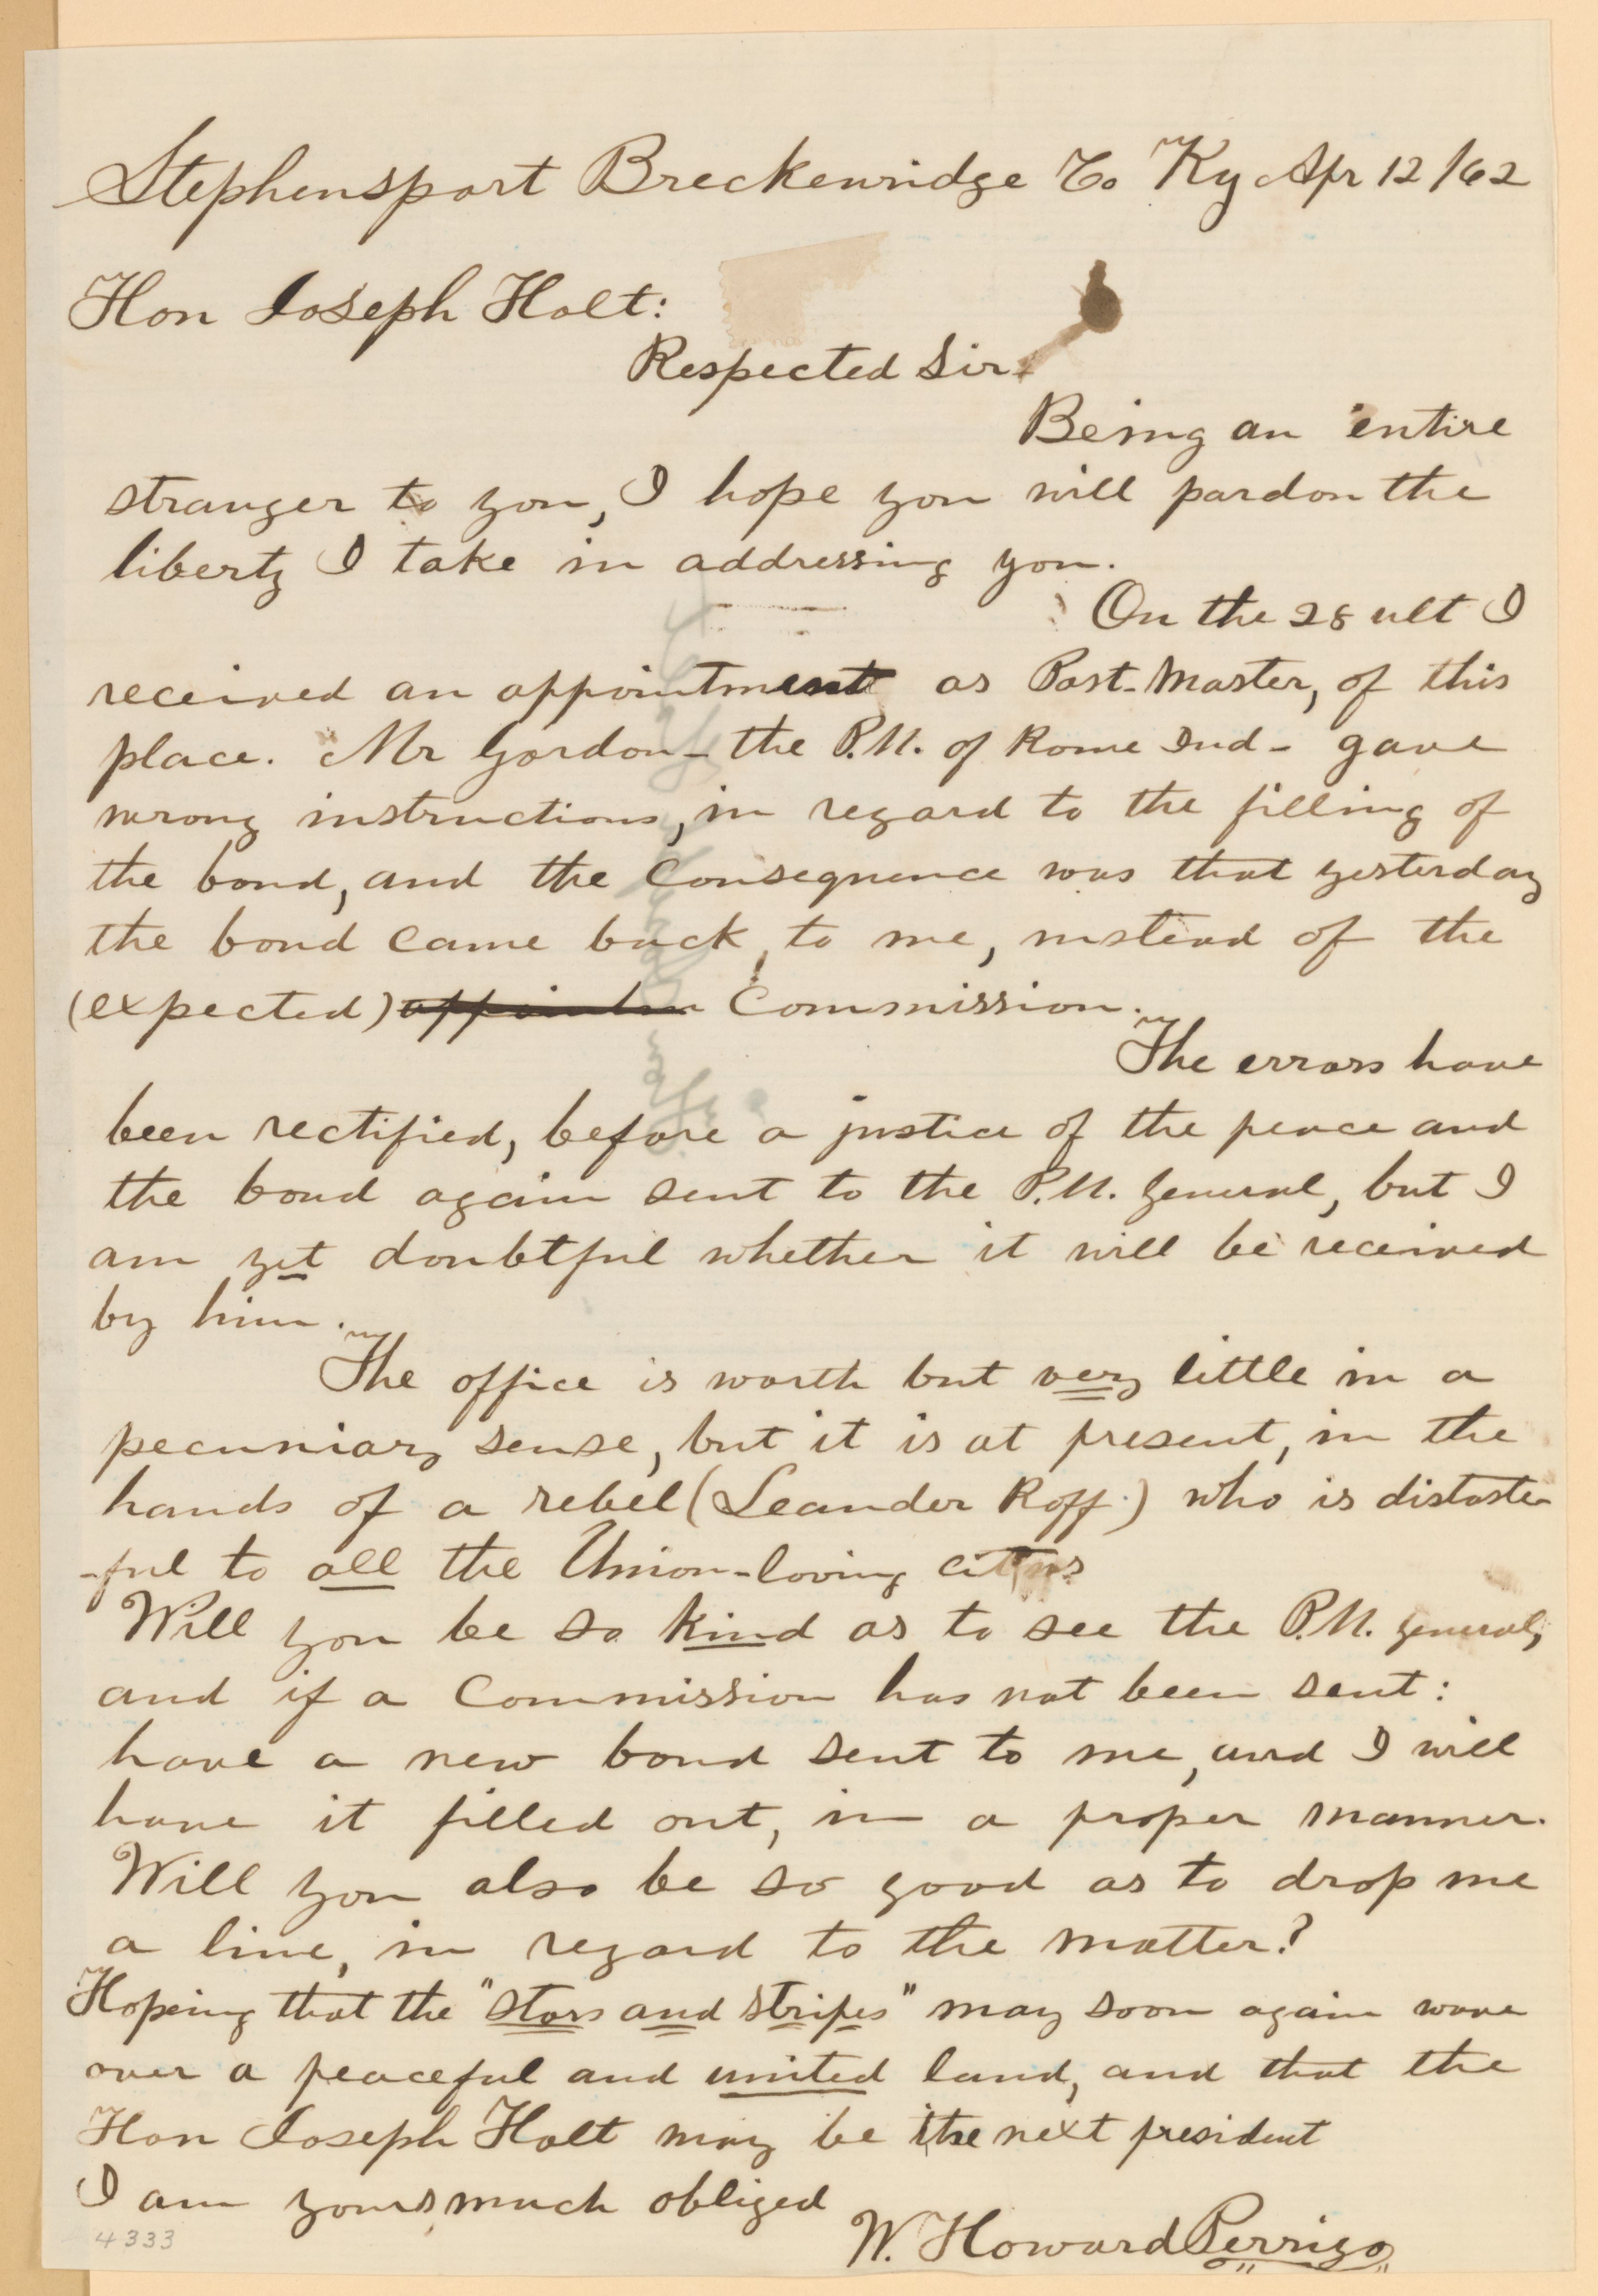 Stephensport Breckenridge Co Ky Apr 12/62
Hon Joseph Holt:
Respected Sir.
Being an entire
stranger to you, I hope you will pardon the
liberty I take in addressing you.
On the 28 ult I
received an appointment as Post-Master, of this
place. Mr Gordon - the P.M. of Rome Ind - gave
wrong instructions, in regard to the filling of
the bond, and the consequence was that yesterday
the bond came back to me, instead of the
(expected) appointm Commission.
The errors have
been rectified, before a justice of the peace and
the bond again sent to the P.M. General, but I
am yet doubtful whether it will be received
by him.
The office is worth but very little in a
pecuniary sense, but it is at present, in the
hands of a rebel (Leander Roff.) who is distaste
-ful to all the Union-loving
Will you be so kind as to see the P.M. General,
and if a Commission has not been sent:
have a new bond sent to me, and I will
have it filled out, in a proper manner.
Will you also be so good as to drop me
a line, in regard to the matter?
Hoping that the "stars and stripes" may soon again wave
over a peaceful and united land, and that the
Hon Joseph Holt may be the next president
I am yours much obliged
W. Howard Perrigo
4333